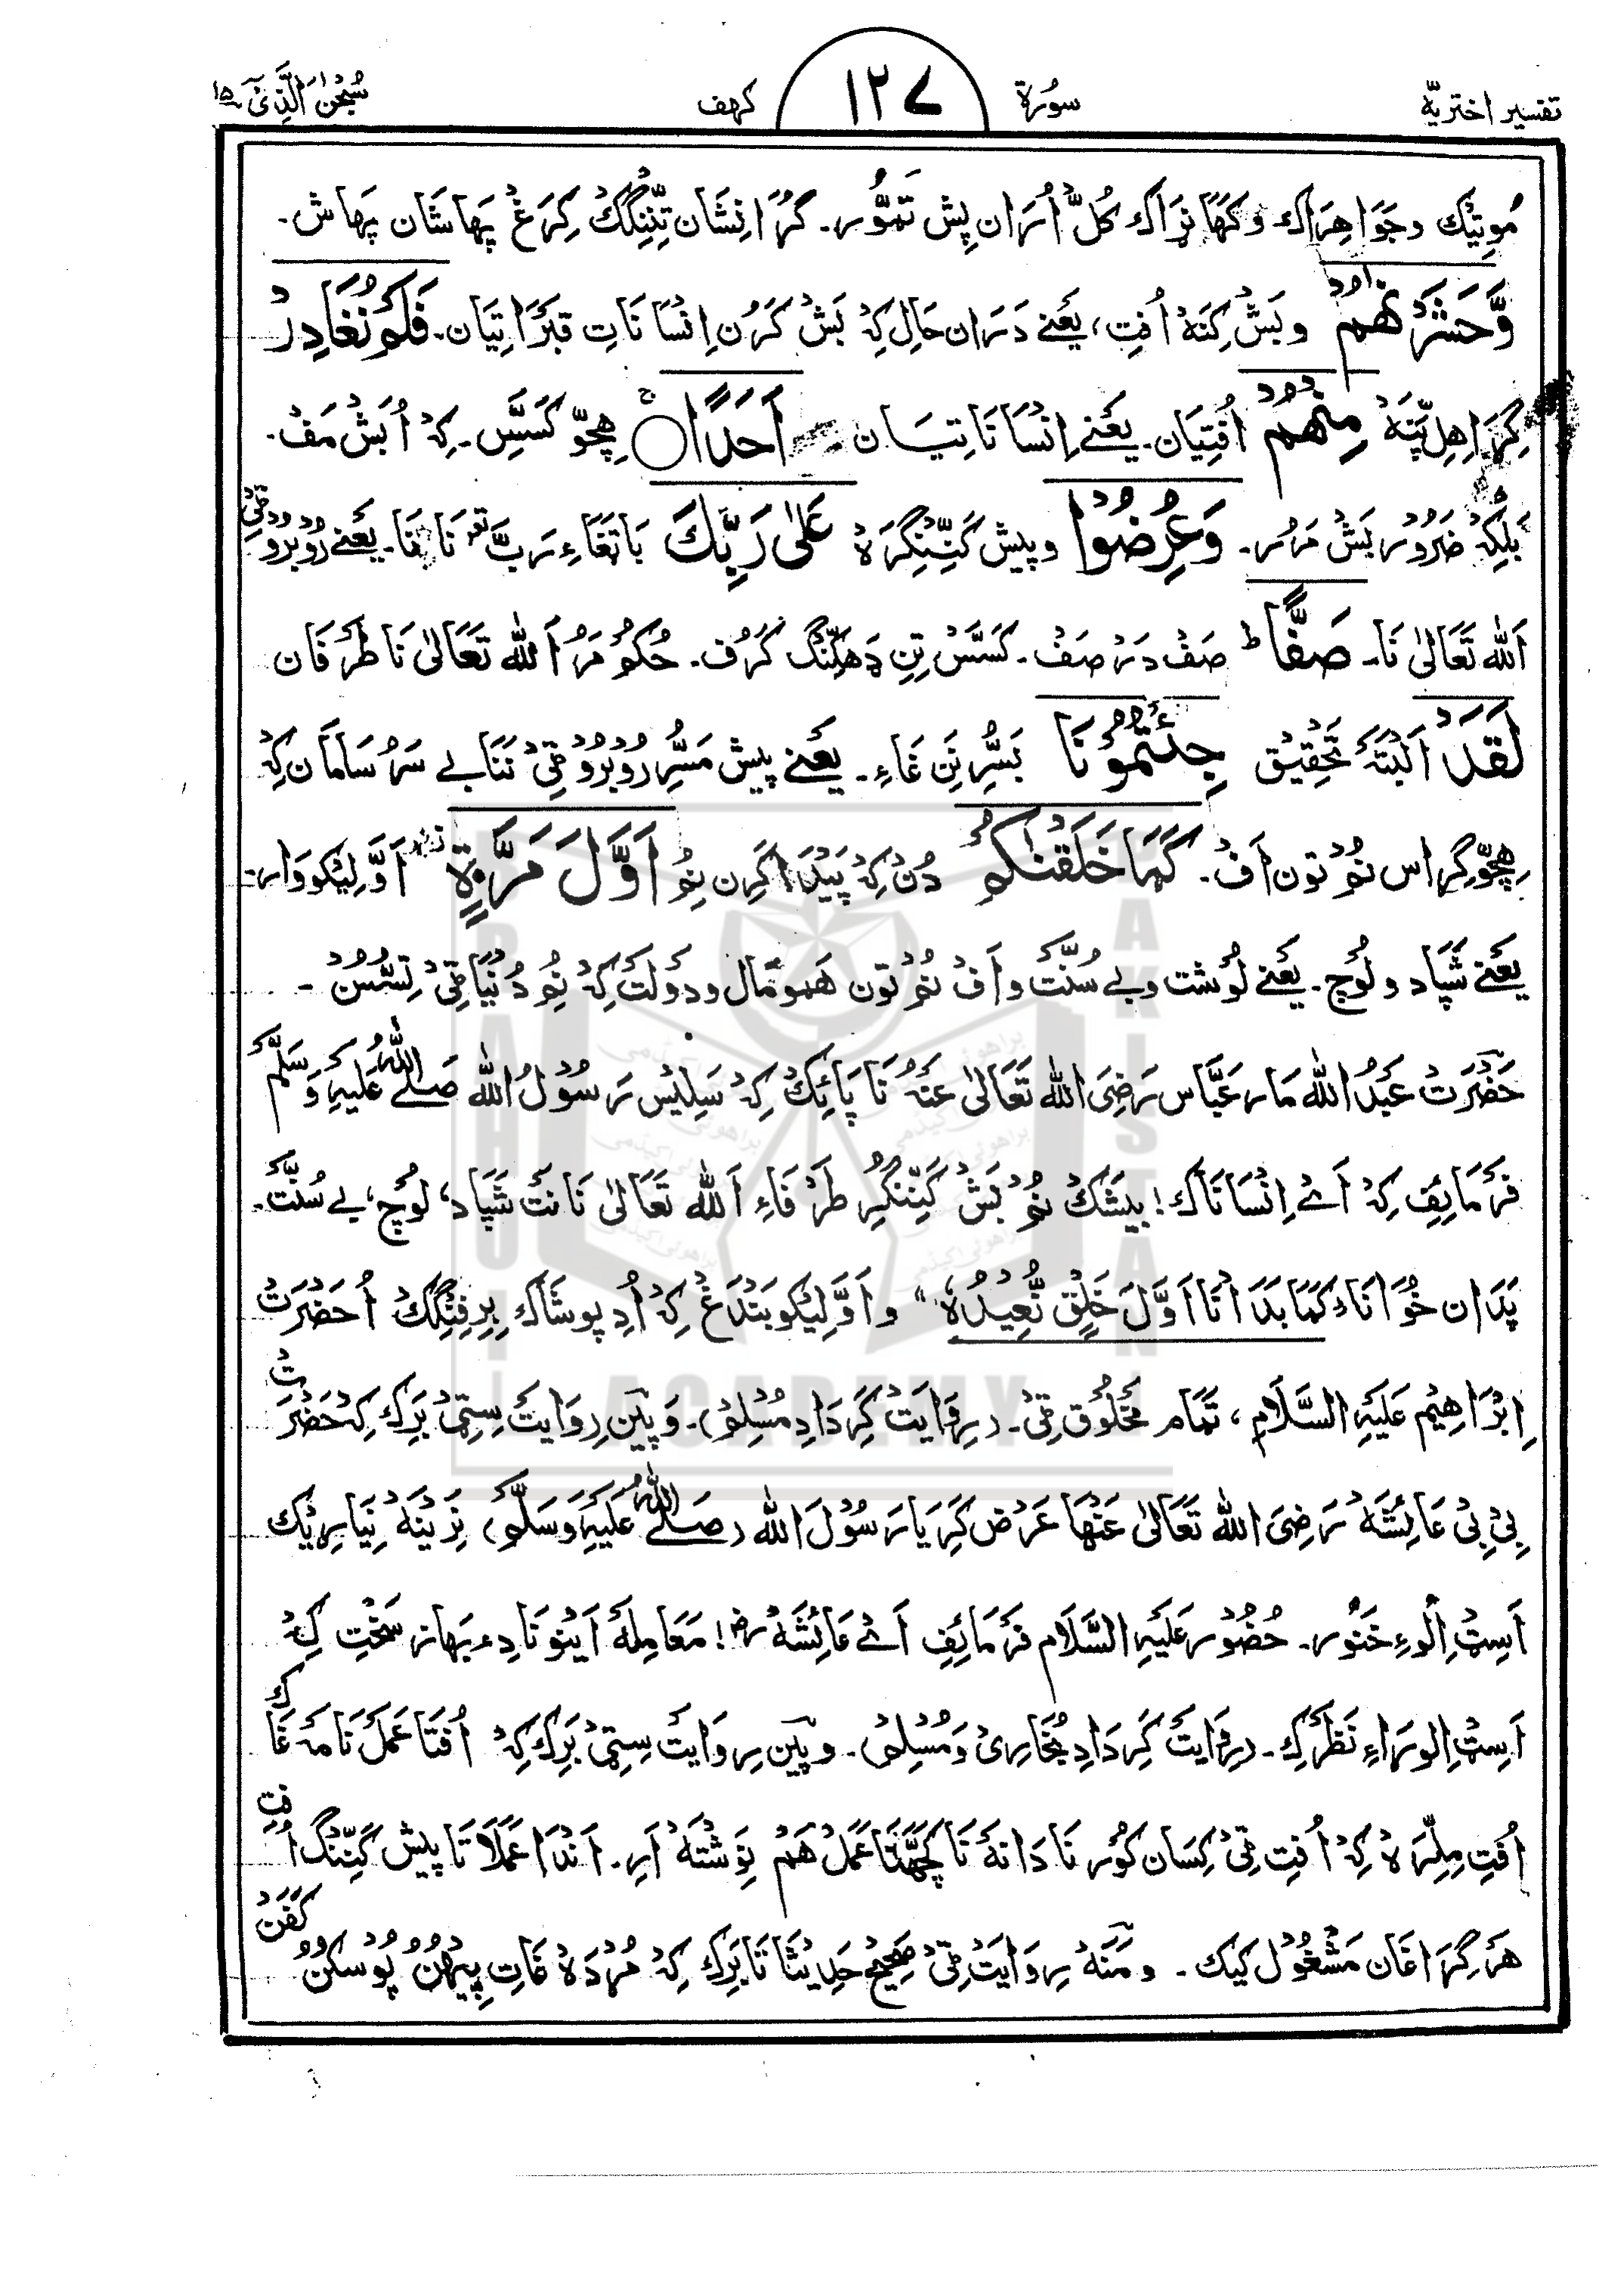 تفسیر اختریّہ سُورۃ ۱۲۷ کہف سُبْحٰنَ الَّذِیْ ۱۵
مُوتِیْک و جَوَاهِرَاک وَکَهَانِرَاک کُلّ اُرَان پِش تَمُّور۔ گُرَا نِشَان تِنِّنگِکُ کِرَغْ پَهَاشَان پَهَاش۔
وَّحَشَرْنٰهُمْ و بَشْ کِنَهْ اُفتِ، یَعْنے دَرَان حَال کِہْ بَشْ کَرُن اِنْسَانَاتِ قَبَرَاتِیَان۔ فَلَمْ نُغَادِرْ
گِرَا هِلِپَّتَهْ مِنْهُمْ اُفْتِیَان۔ یَعْنے اِنْسَانَاتِیَان اَحَدًا هِچّو کَسَّسِ۔ کِہْ اُ بَشْ مَفْ۔
بَلْکِہْ ضَرُوْر بَشْ مَرُر۔ وَعُرِضُوْا و پیش کَنِّنْگِرَہْ عَلٰی رَبِّكَ بَاتْغَاءِ رَبَّ نَا نَا۔ یَعْنے رُوْبُرُو ٹِیْ
اَللّٰه تَعَالٰی نَا۔ صَفًّا ط صَفْ دَرْ صَفْ۔ کَسَّسْ تِنِ ڈَهکِنْگ کَرُف۔ حُکُم مَرُ اَللّٰه تَعَالٰی نَا طَرْفَان
لَقَدْ اَلبَتَّہ تَحْقِیْق جِئْتُمُوْنَا بَسُّرِ نَن غَاءِ۔ یَعْنے پیش مَسُّرِ رُوْبُرُو ٹِیْ نَنَا بے سَرُ سَامَان کِہْ
هِچّو گِرَاس نُم تون اَفْ۔ کَمَا خَلَقْنٰکُمْ دُنْ کِہْ پَیْدَا کَرِن نُمِ اَوَّلَ مَرَّةٍ اَوَّلِیْکُو وَار۔
یَعْنے شَپَاد و لُوچ۔ یَعْنے لُوشت و بے سُنَّتْ و اَفْ نُمْ تون هَمو مَال و دَولَت کِہْ نُم دُنْیَا ٹِیْ تِسُّسُنْ۔
حَضْرَتْ عَبْدُ اللّٰه مَار عَبَّاس رَضِیَ اللّٰه تَعَالٰی عَنْهُ نَا پَائِکْ کِہْ سَلِیْس رَسُوْلُ اللّٰه صَلَّی اللّٰهُ عَلَیْهِ وَسَلَّمْ
فَرْمَائِفِ کِہْ اَے اِنْسَانَاک! بیشَکْ نُمْ بَشْ کَنِّنْگِرِ طَرْفَاءِ اَللّٰه تَعَالٰی نَا نَتْ شَپَاد، لُوچ، بے سُنَّتْ۔
پَدَان خُوانَاءِ کَمَا بَدَاْنَا اَوَّلَ خَلْقٍ نُّعِیْدُهٗ " و اَوَّلِیْکُو بَنْدَغْ کِہْ اُدِ پوشَاک بِرِفِنْگِکْ اُ حَضْرَتْ
اِبْرَاهِیْم عَلَیْهِ السَّلَام، تَمَام مَخْلُوْق ٹِیْ۔ (رِوَایَتْ کَرِ دَادِ مُسْلِمْ)۔ وَپِین رِوَایَتْ سِٹِیْ بَرِک کِہْ حَضْرَتْ
بِیْ بِیْ عَائِشَهْ رَضِیَ اللّٰه تَعَالٰی عَنْهَا عَرْض کَرِ یَا رَسُوْلَ اللّٰه (صَلَّی اللّٰهُ عَلَیْهِ وَسَلَّمْ) نَرِیْنَهْ نِیَارِیْک
اَسِٹ اِلُوءِ خَنُور۔ حُضُوْر عَلَیْهِ السَّلَام فَرْمَائِفِ اَے عَائِشَهْ رض! مَعَامِلَهْ اَیْنُو نَا دِء بَهَاز سَخْتِ کِہْ
اَسِٹ اِلو رَاءِ نَظَر کِکْ۔ (رِوَایَتْ کَرِ دَادِ بُخَارِیْ وَ مُسْلِمْ)۔ و پِین رِوَایَتْ سِٹِیْ بَرِک کِہْ اُفْتَا عَمَل نَامَہ غَاکْ
اُفتِ مِلِّرَہْ کِہْ اُفتِ ٹِیْ کِسَان کُور نَا دَانَهْ نَا کَچَّهْنَا عَمَلْ هَمْ نِوِشْتَهْ اَرِ۔ اَنْدَا عَمَلَاتَا پیش کَنِّنْگ اُفتِ
هَر گِرَاغَان مَشْغُوْل کِیک۔ و مَنَهْ رِوَایَتْ ٹِیْ صَحِیْح حَدِیْثَا نَا بَرِک کِہْ مُرْدَہْ غَاتِ پِیْهُنْ پُوْسْکُنْ کَفَنْ